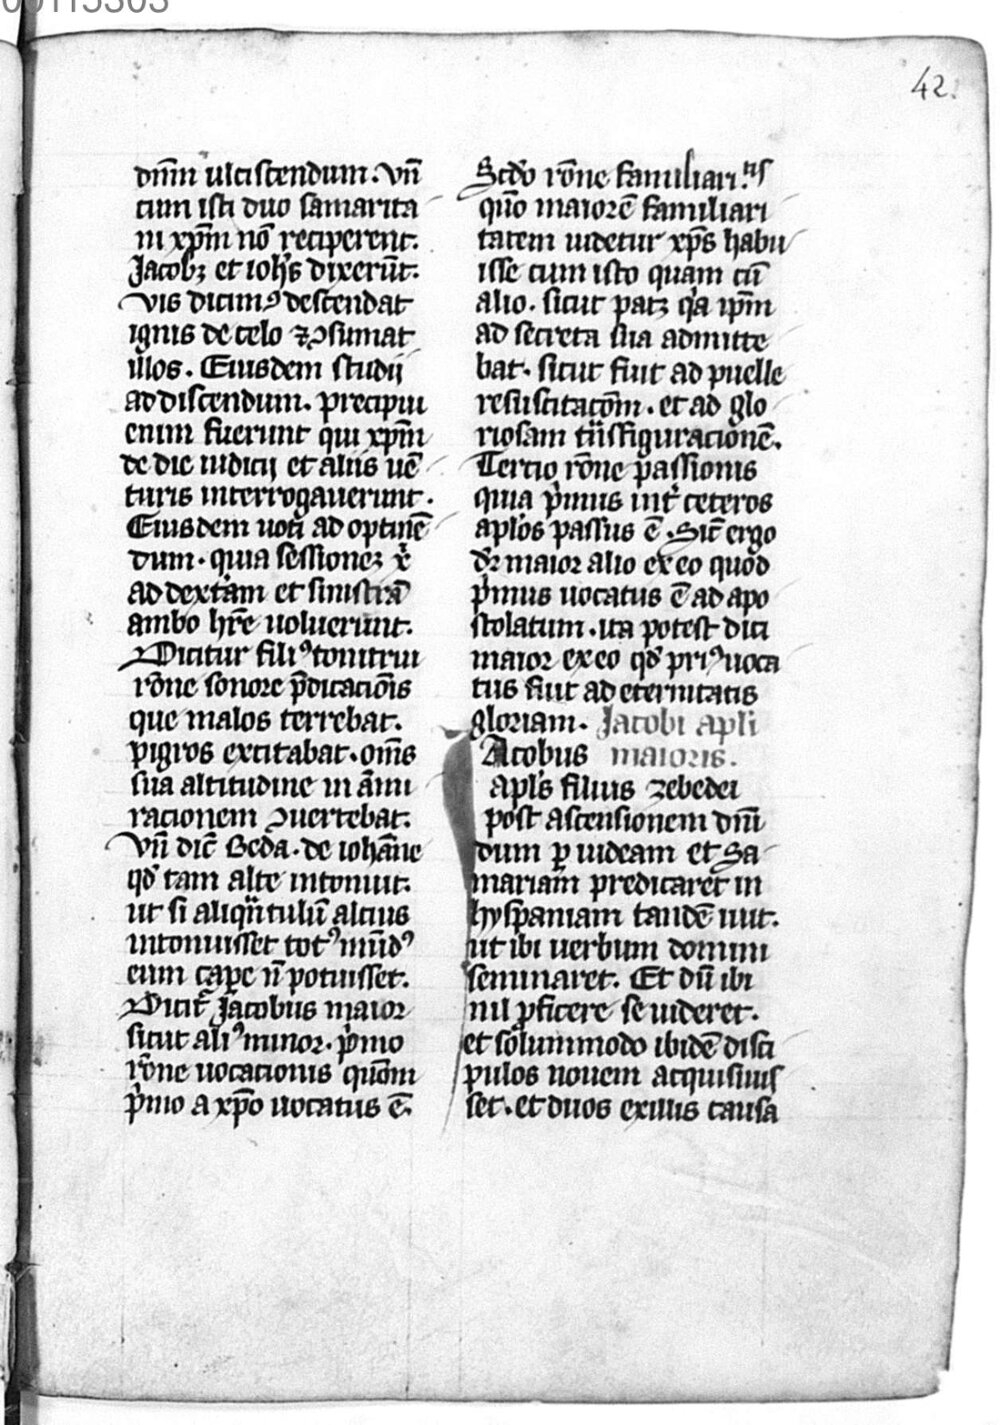 42.
dnm̄ ulciscendum. vn̄
cum isti duo samarita
ni xp̄m nō reciperent.
Jacobꝫ et ioh̄s dixerūt.
vis dicimꝰ descendat
ignis de celo ⁊ ꝯsumat
illos. Eiusdem studii
ad discendum. precipui
enim fuerunt qui xp̄m
de die iudicij et aliis uē
turis interrogauerunt.
Eiusdem uoti ad optinē
dum. quia sessioneꝫ
ad dextam et sinistrā
ambo hr̄e uoluerunt.
Dicitur filiꝰ tonitrui
rōne sonore p̄dicacōis
que malos terrebat.
pigros excitabat. om̄s
sua altitudine in ām̄i
racionem ꝯuertebat.
Vn̄ dic̄ Beda. de iohāne
qd̄ tam alte intonuit.
ut si aliqn̄tulū alcius
intonuisset totꝰ mūdꝰ
eum cap̲e n̄ potuisset.
Dicit̄ Jacobus maior
sicut aliꝰ minor. p̄mo
rōne uocacionis quōm
p̄mo a xp̄o uocatus ē.
Scdo rōne familiari.tis
quō maiorē familiari
tatem uidetur xp̄s habu
isse cum isto quam cū
alio. sicut patꝫ qͣa ip̄m
ad secreta sua admitte
bat. sicut fuit ad puelle
resuscitacōm. et ad glo
riosam tͣnsfiguracionē.
Tercio rōne passionis
quia p̄mus int̄ ceteros
apl̄os passus ē. Sic̄ ergo
dr̄ maior alio ex eo quod
p̄mus uocatus ē ad apo
stolatum. ita potest dici
maior ex eo qd̄ priꝰ uoca
tus fuit ad eternitatis
gloriam. Jacobi apl̄i
Acobus maioris.
apl̄s filius zebedei
post ascensionem dn̄i
dum p̲ iudeam et Sa
mariam predicaret in
hyspaniam tandē iuit.
ut ibi uerbum domini
seminaret. Et dū ibi
nil p̲ficere se uideret.
et solummodo ibidē disci
pulos nouem acquisiuis
set. et duos ex illis causa